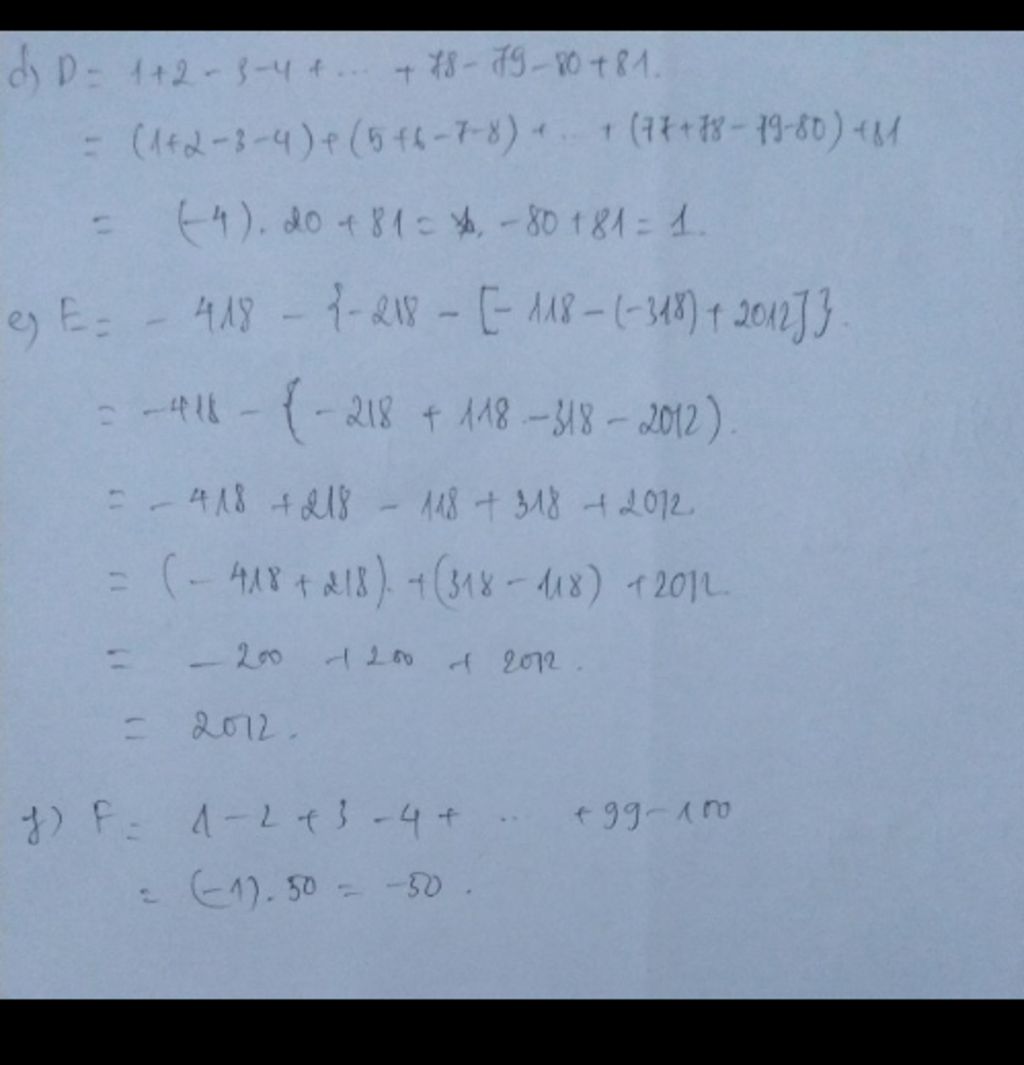 d) D = 1+2-3-4+ ... + 78-79-80+81.
= (1+2-3-4)+(5+6-7-8)+ ... + (77+78-79-80)+81
= (-4). 20 +81 = -80+81 = 1.
e) E = - 418 - {-218 - [-118-(-318)+2012]}.
= -418 - { -218 + 118 -318 - 2012).
= - 418 +218 - 118 + 318 + 2012
= (- 418 + 218). +(318-118) +2012.
= - 200 + 200 + 2012.
= 2012.
f) F = 1-2+3-4+ ... +99-100
= (-1). 50 = -50.